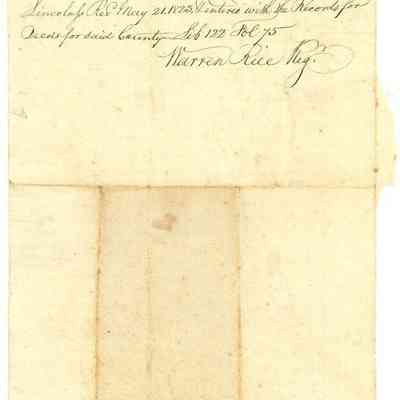 Lincoln ss Recd May 21. 1823 & entered with the Records for
Deeds for said County Lib 122 Fol 75
Warren Rice Regr